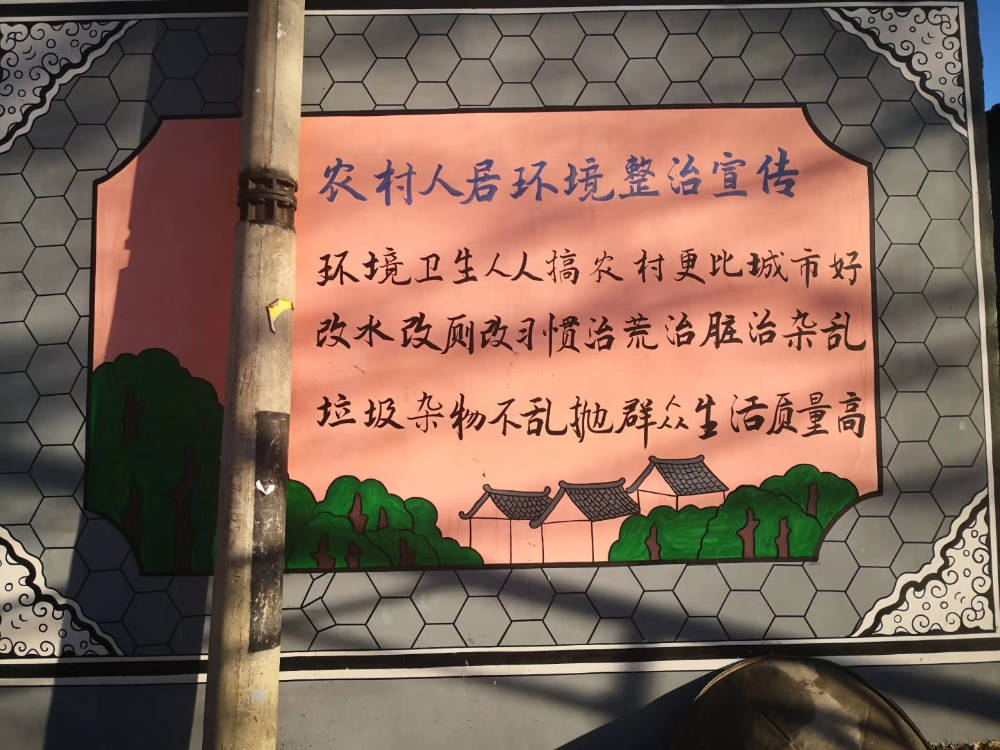 农村人居环境整治宣传
环境卫生人人搞农村更比城市好
改水改厕改习惯治荒治脏治杂乱
垃圾杂物不乱抛群众生活质量高